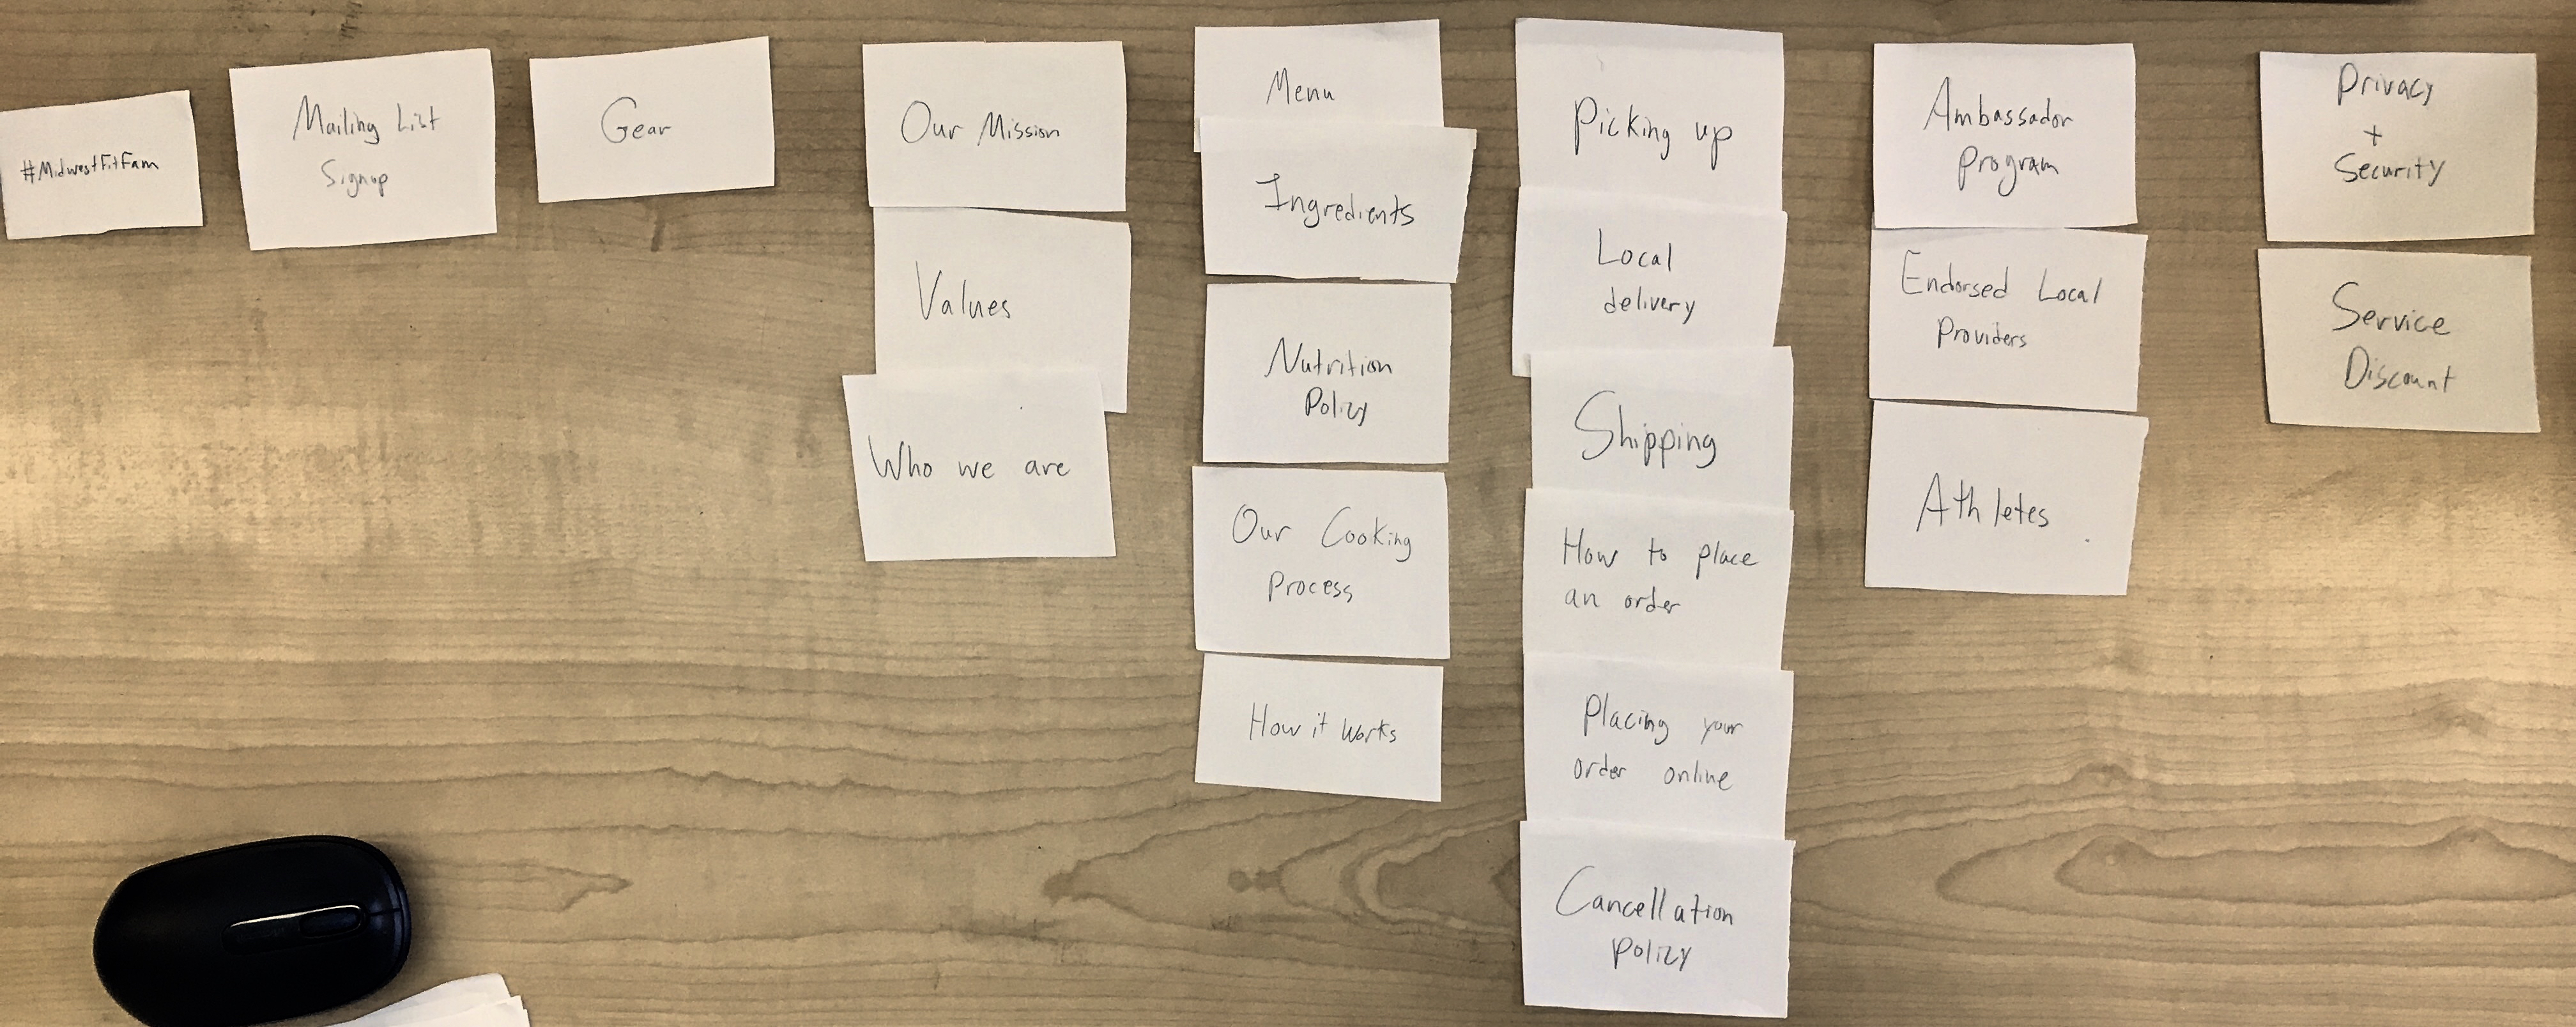 #MidwestFitFam
Mailing List
Signup
Gear
Our Mission
Values
Who we are
Menu
Ingredients
Nutrition
Policy
Our Cooking
Process
How it Works
Picking up
Local
delivery
Shipping
How to place
an order
Placing your
order online
Cancellation
Policy
Ambassador
Program
Endorsed Local
Providers
Athletes
Privacy
+
Security
Service
Discount